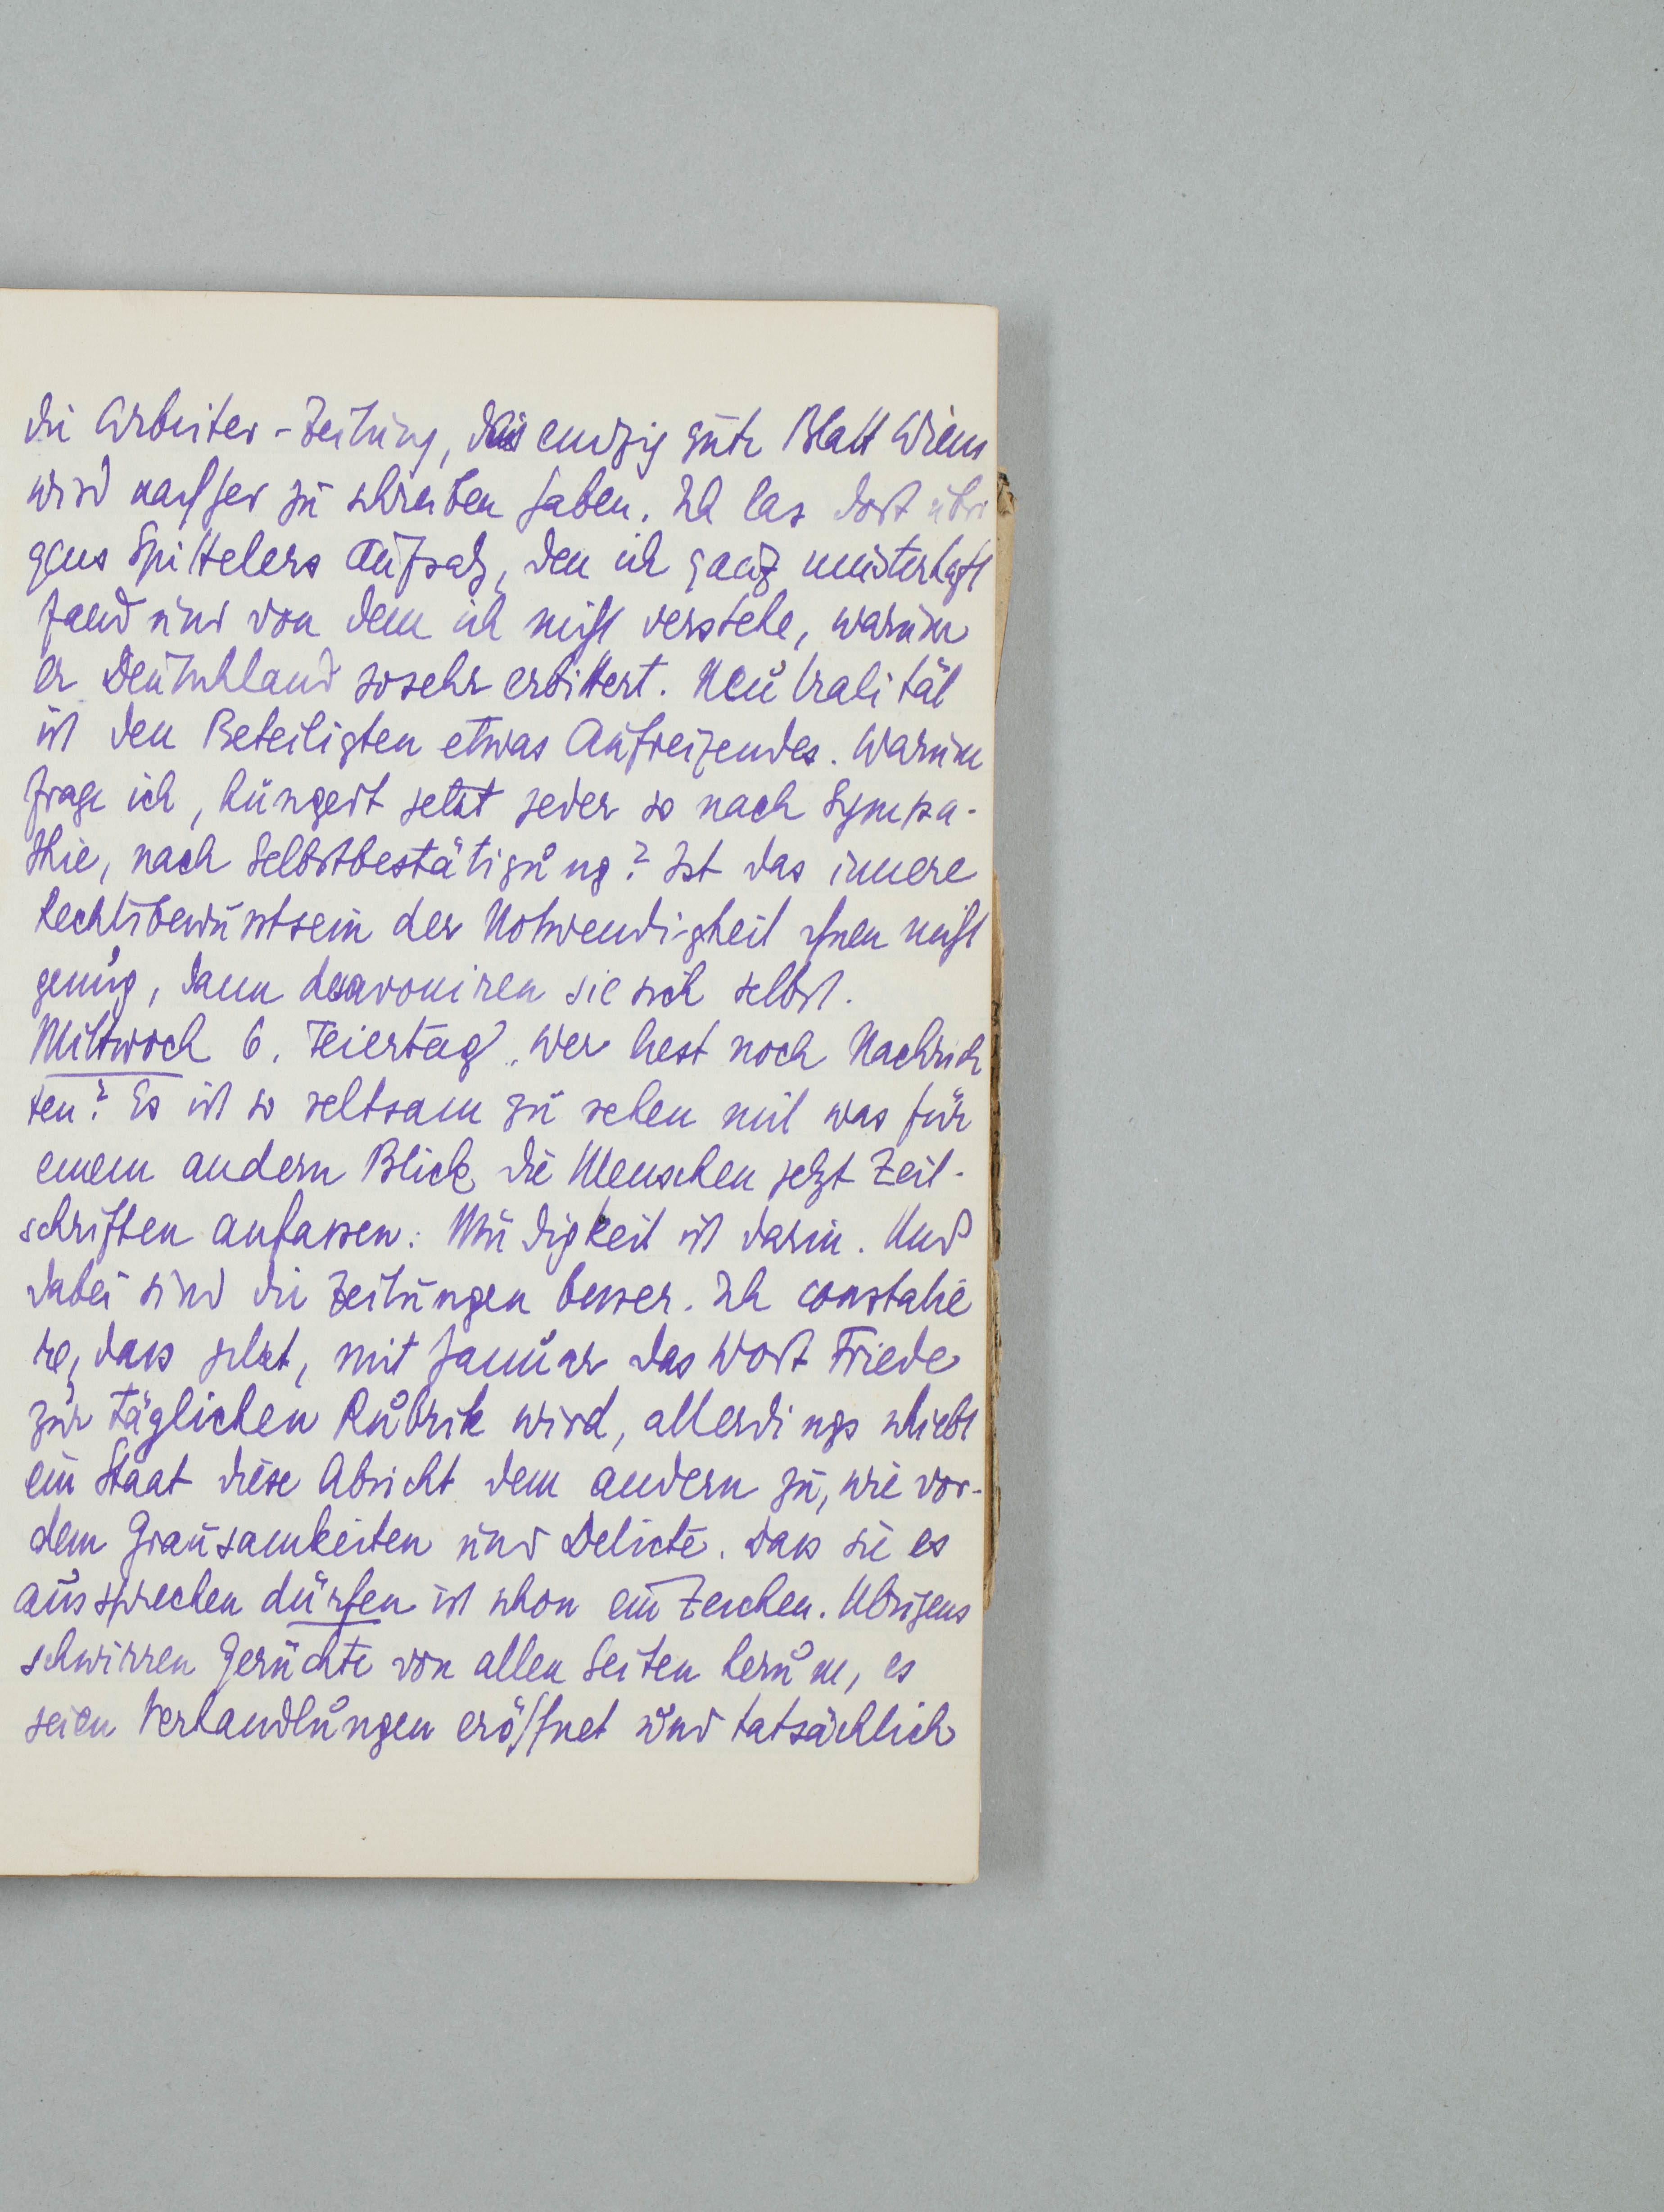 die Arbeiter-Zeitung, das einzig gute Blatt Wiens
wird nachher zu schreiben haben. Ich las dort übri
gens Spittelers Aufsatz, den ich ganz meisterhaft
fand und von dem ich nicht verstehe, warum
er Deutschland sosehr erbittert. Neutralität
ist den Beteiligten etwas Aufreizendes. Warum
frage ich, hungert jetzt jeder so nach Sympa-
thie, nach Selbstbestätigung? Ist das innere
Rechtsbewusstsein der Notwendigkeit ihnen nicht
genug, dann desavouiren sie sich selbst.
Mittwoch 6. Feiertag. Wer liest noch Nachrich
ten? Es ist so seltsam zu sehen mit was für
einem andern Blick die Menschen jetzt Zeit-
schriften anfassen: Müdigkeit ist darin. Und
dabei sind die Zeitungen besser. Ich constatie
re, dass jetzt, mit Januar das Wort Friede
zur täglichen Rubrik wird, allerdings schiebt
ein Staat diese Absicht dem andern zu, wie vor-
dem Grausamkeiten und Delicte. Dass sie es
aussprechen dürfen ist schon ein Zeichen. Übrigens
schwirren Gerüchte von allen Seiten herum, es
seien Verhandlungen eröffnet und tatsächlich